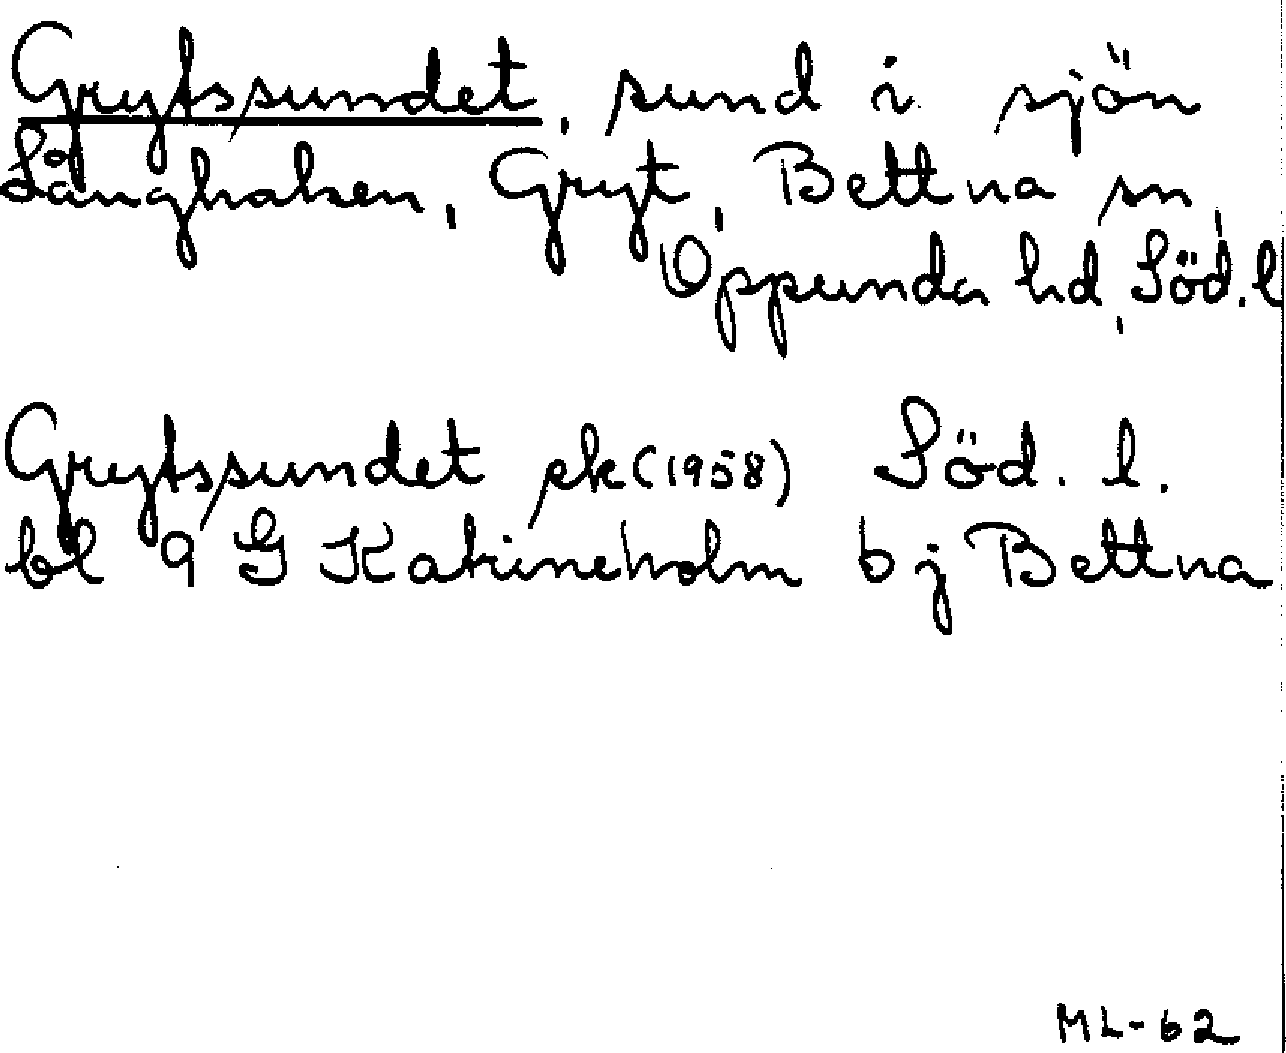 Grytssundet, sund i sjön
Långhalsen, Gryt, Bettna sn,
Oppunda hd, Söd. l
Grytssundet ek (1958) Söd. l.
bl 9 G Katrineholm b j Bettna
ML-62